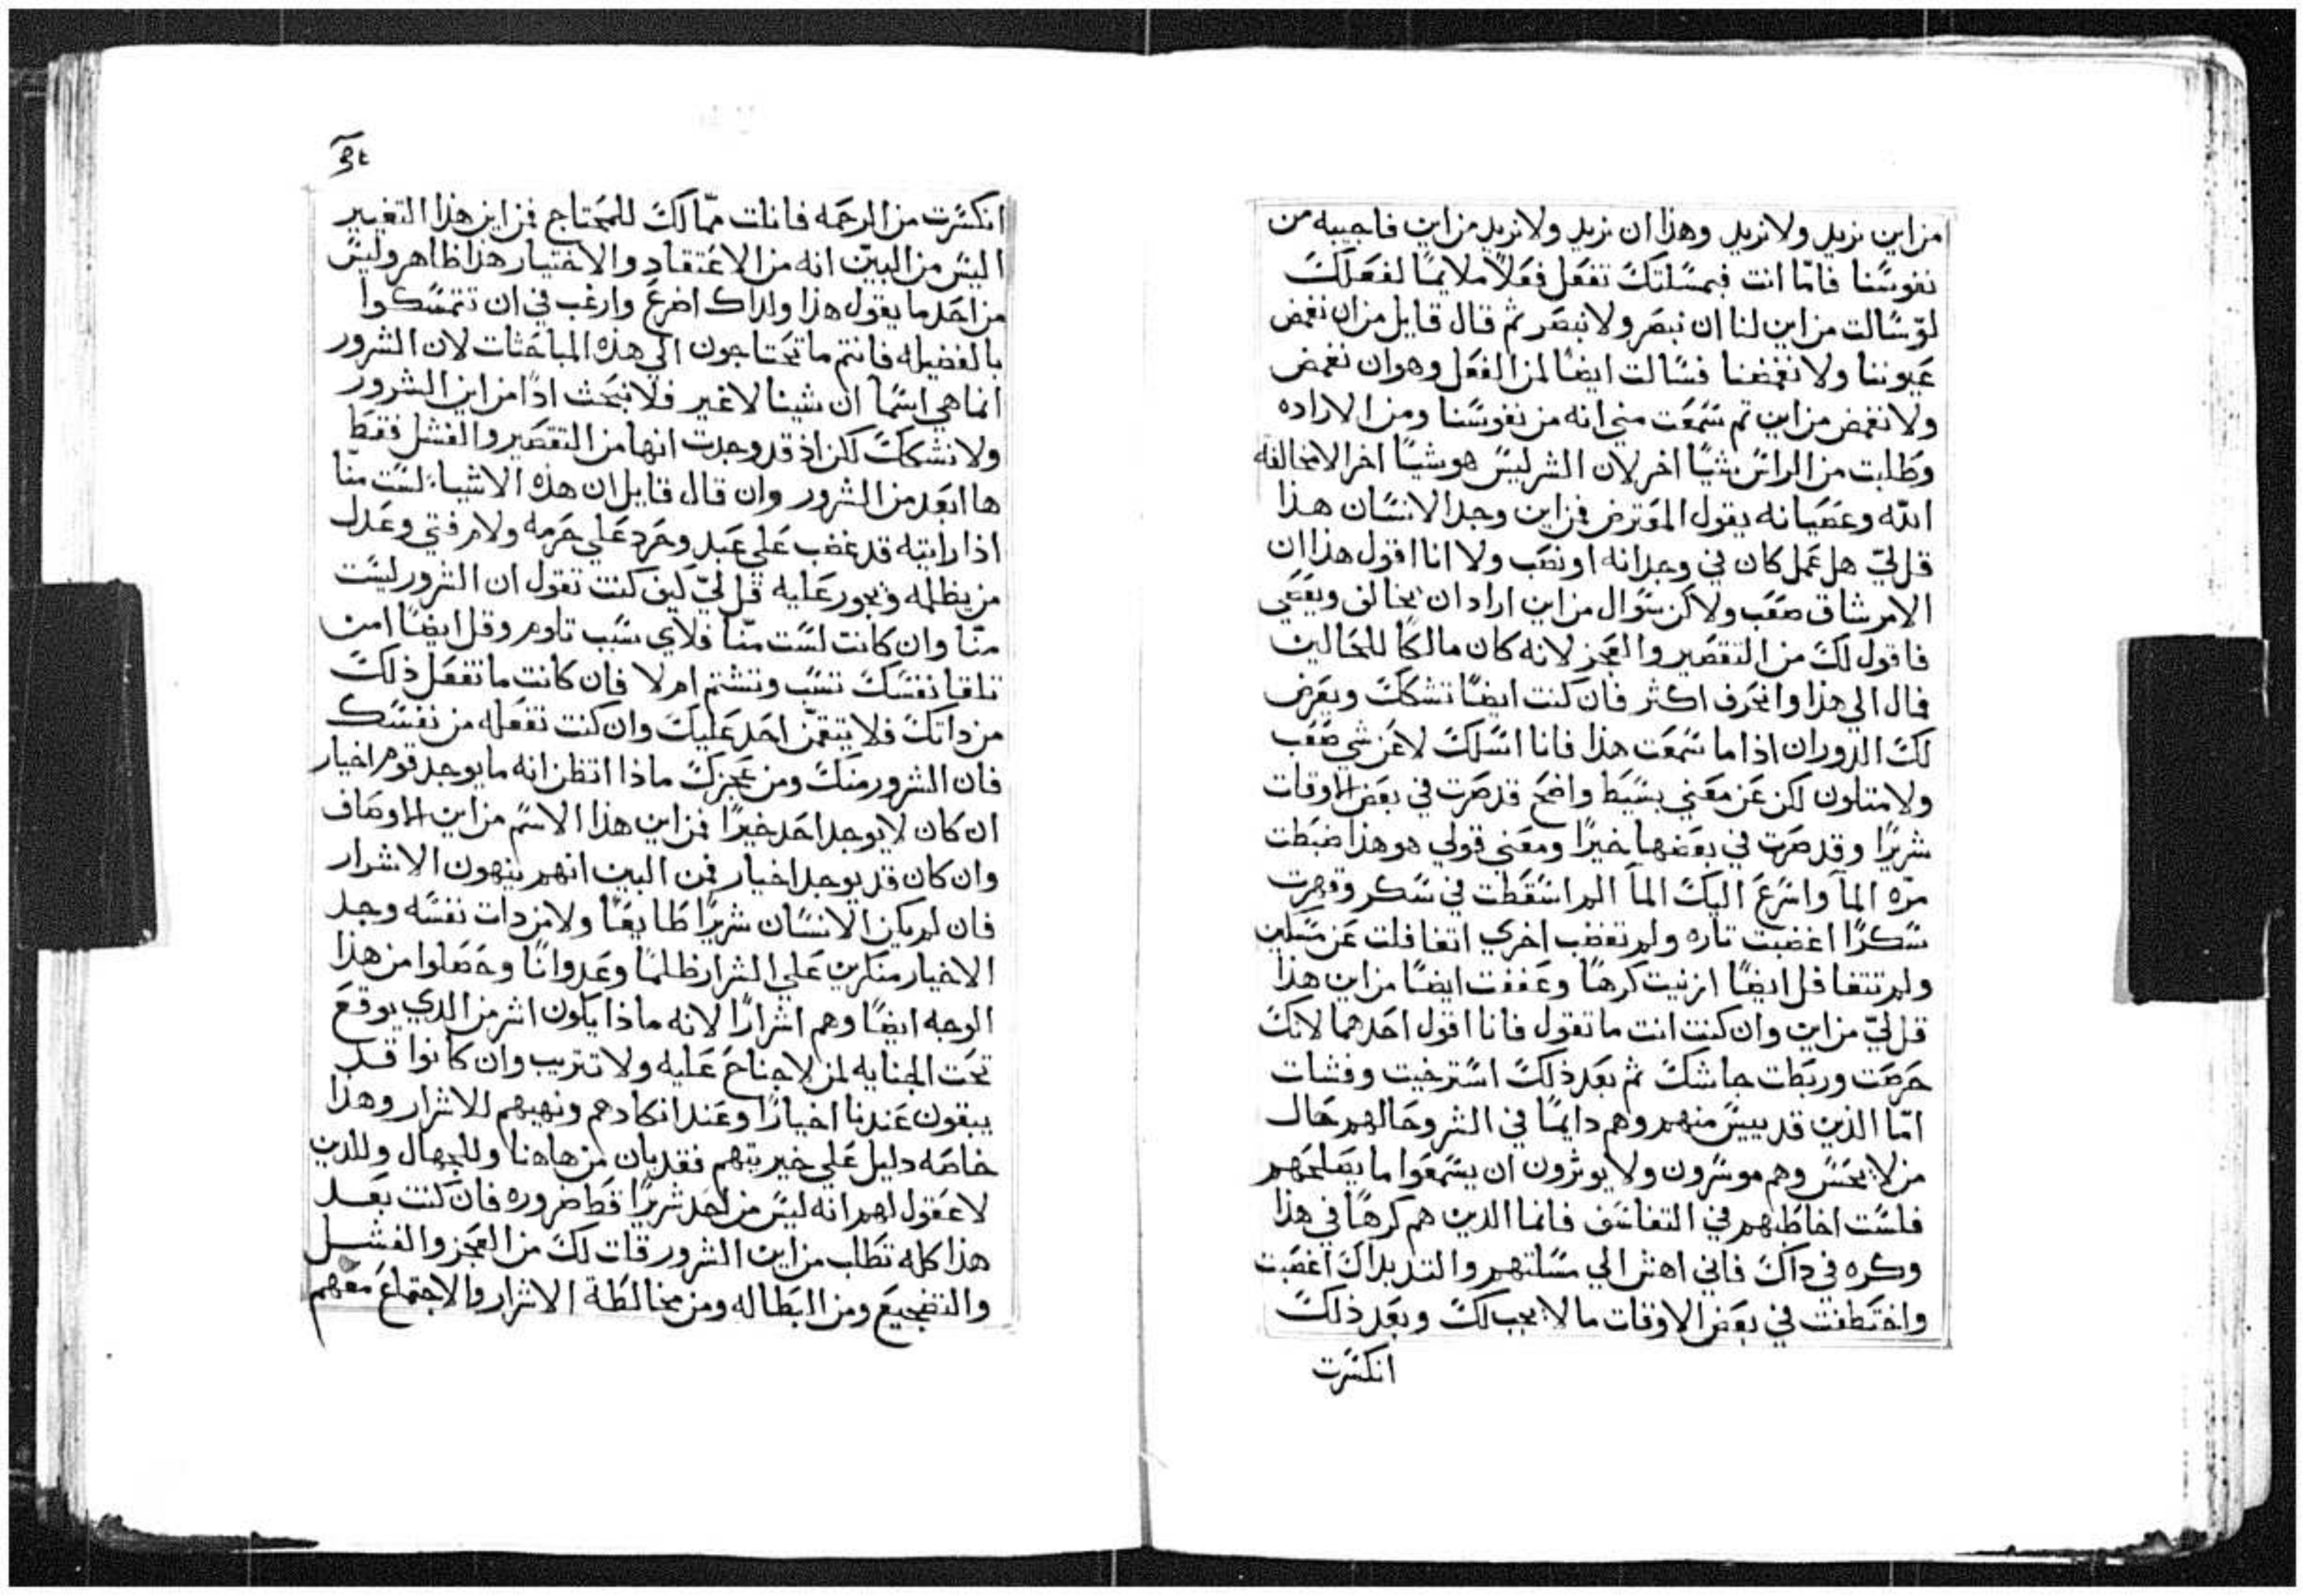 من اين نريد ولا نريد وهذا ان نريد ولا نريد من اين فاجيبه من
نفوسنا فامّا انت فبمسلتك تفعل فعلاً ملايمًا لفعلك
لو سالت من اين لنا ان نبصر ولا نبصر ثم قال قايل من ان نغمض
عيوننا ولا نغمضنا فسالت ايضًا لمن الفعل وهو ان نغمض
ولا نغمض من اين ثم سمعت مني انه من نفوسنا ومن الاراده
وطلبت من الراس شيًا اخر لان الشر ليس هو شيًا اخر الا مخالفة
الله وعصيانه يقول المعترض فمن اين وجد الانسان هذا
قل ليّ هل عمل كان في وجدانه او نصب ولا انا اقول هذا ان
الامر شاق صعب ولاكن سوال من اين اراد ان يخالف ويعصي
فاقول لك من التقصير والعجز لانه كان مالكًا للحالين
فمال الي هذا وانحرف اكثر فان كنت ايضًا تشكك ويعرض
لك الدوران اذا ما سمعت هذا فانا اسلك لا عن شي صعب
ولا متلون لكن عن معني بسيط واضح قد صرت في بعض الاوقات
شريرًا وقد صرت في بعضها خيرًا ومعني قولي هو هذا ضبطت
مرّه الماً واسرع اليك الماً الم اسقطت في سكر وقهرت
سكرًا اغضبت تاره ولم تغضب اخري اتغافلت عن مسكين
ولم تتغافل ايضًا ازنيت كرهًا وعففت ايضًا من اين هذا
قل ليّ من اين وان كنت انت ما تقول فانا اقول احدهما لانك
حرصت وربطت جاشك ثم بعد ذلك استرخيت وفشات
امّا الذين قد يييس منهم وهم دايمًا في الشر وحالهم حال
من لا يحسّ وهم موسرون ولا يوثرون ان يسمعوا ما يصلحهم
فلست اخاطبهم في التفاسف فانما الذين هم كرهًا في هذا
وكره في داك فاني اهش الي مسلتهم والتديداك اغضبت
واختطفت في بعض الاوقات ما لا يجب لك وبعد ذلك
انكسرت
انكسرت من الرحمه فانلت ممّا لك للمحتاج فمن اين هذا التغيير
اليس من البيّن انه من الاعتقاد والاختيار هذا ظاهر وليس
من احد ما يقول هذا ولداك اضرع وارغب في ان تتمسكوا
بالفضيله فانتم ما تحتاجون الي هذه المباحثات لان الشرور
انما هي اسمًا ان شينا لا غير فلا نبحث اذًا من اين الشرور
ولا نشكك لكن اذ قد وجدت انها من التقصير والفشل فقط
ها ابعد من الشرور وان قال قايل ان هذه الاشياء لست منّا
اذا رايته قد غضب علي عبد وحرد علي حرمه ولام فتي وعدل
من يظلمه ويجور عليه قل ليّ كيف كنت تقول ان الشرور ليست
منّا وان كانت لست منّا فلاي سبب تلوم وقل ايضًا امن
تلقا نفسك تسب وتشتم ام لا فان كانت ما تفعل ذلك
من داتك فلا يتقمّن احد عليك وان كنت تفعله من نفسك
فان الشرور منك ومن عجزك ماذا اتظن انه ما يوجد قوم اخيار
ان كان لا يوجد احد خيرًا فمن اين هذا الاسم من اين الاوصاف
وان كان قد يوجد اخيار فمن البين انهم ينهون الاشرار
فان لم يكن الانسان شريرًا طايعًا ولا من دات نفسه وجد
الاخيار منكرين علي الشرار ظلمًا وعدوانًا وحصلوا من هذا
الوجه ايضًا وهم اشرارًا لانه ماذا يكون اشر من الدي يوقع
تحت الجنايه لمن لا جناح عليه ولا تتريب وان كانوا قد
يبقون عندنا اخيارًا وعند انكادهم ونهيهم للاشرار وهذا
خاصه دليل علي خيريتهم فقد بان من هاهنا وللجهال وللدين
لا عقول لهم انه ليس من احد شريرًا قط ضروره فان كنت بعد
هذا كله تطلب من اين الشرور قلت لك من العجز والفشل
والتضجيع ومن البطاله ومن مخالطة الاشرار والاجتماع معهم